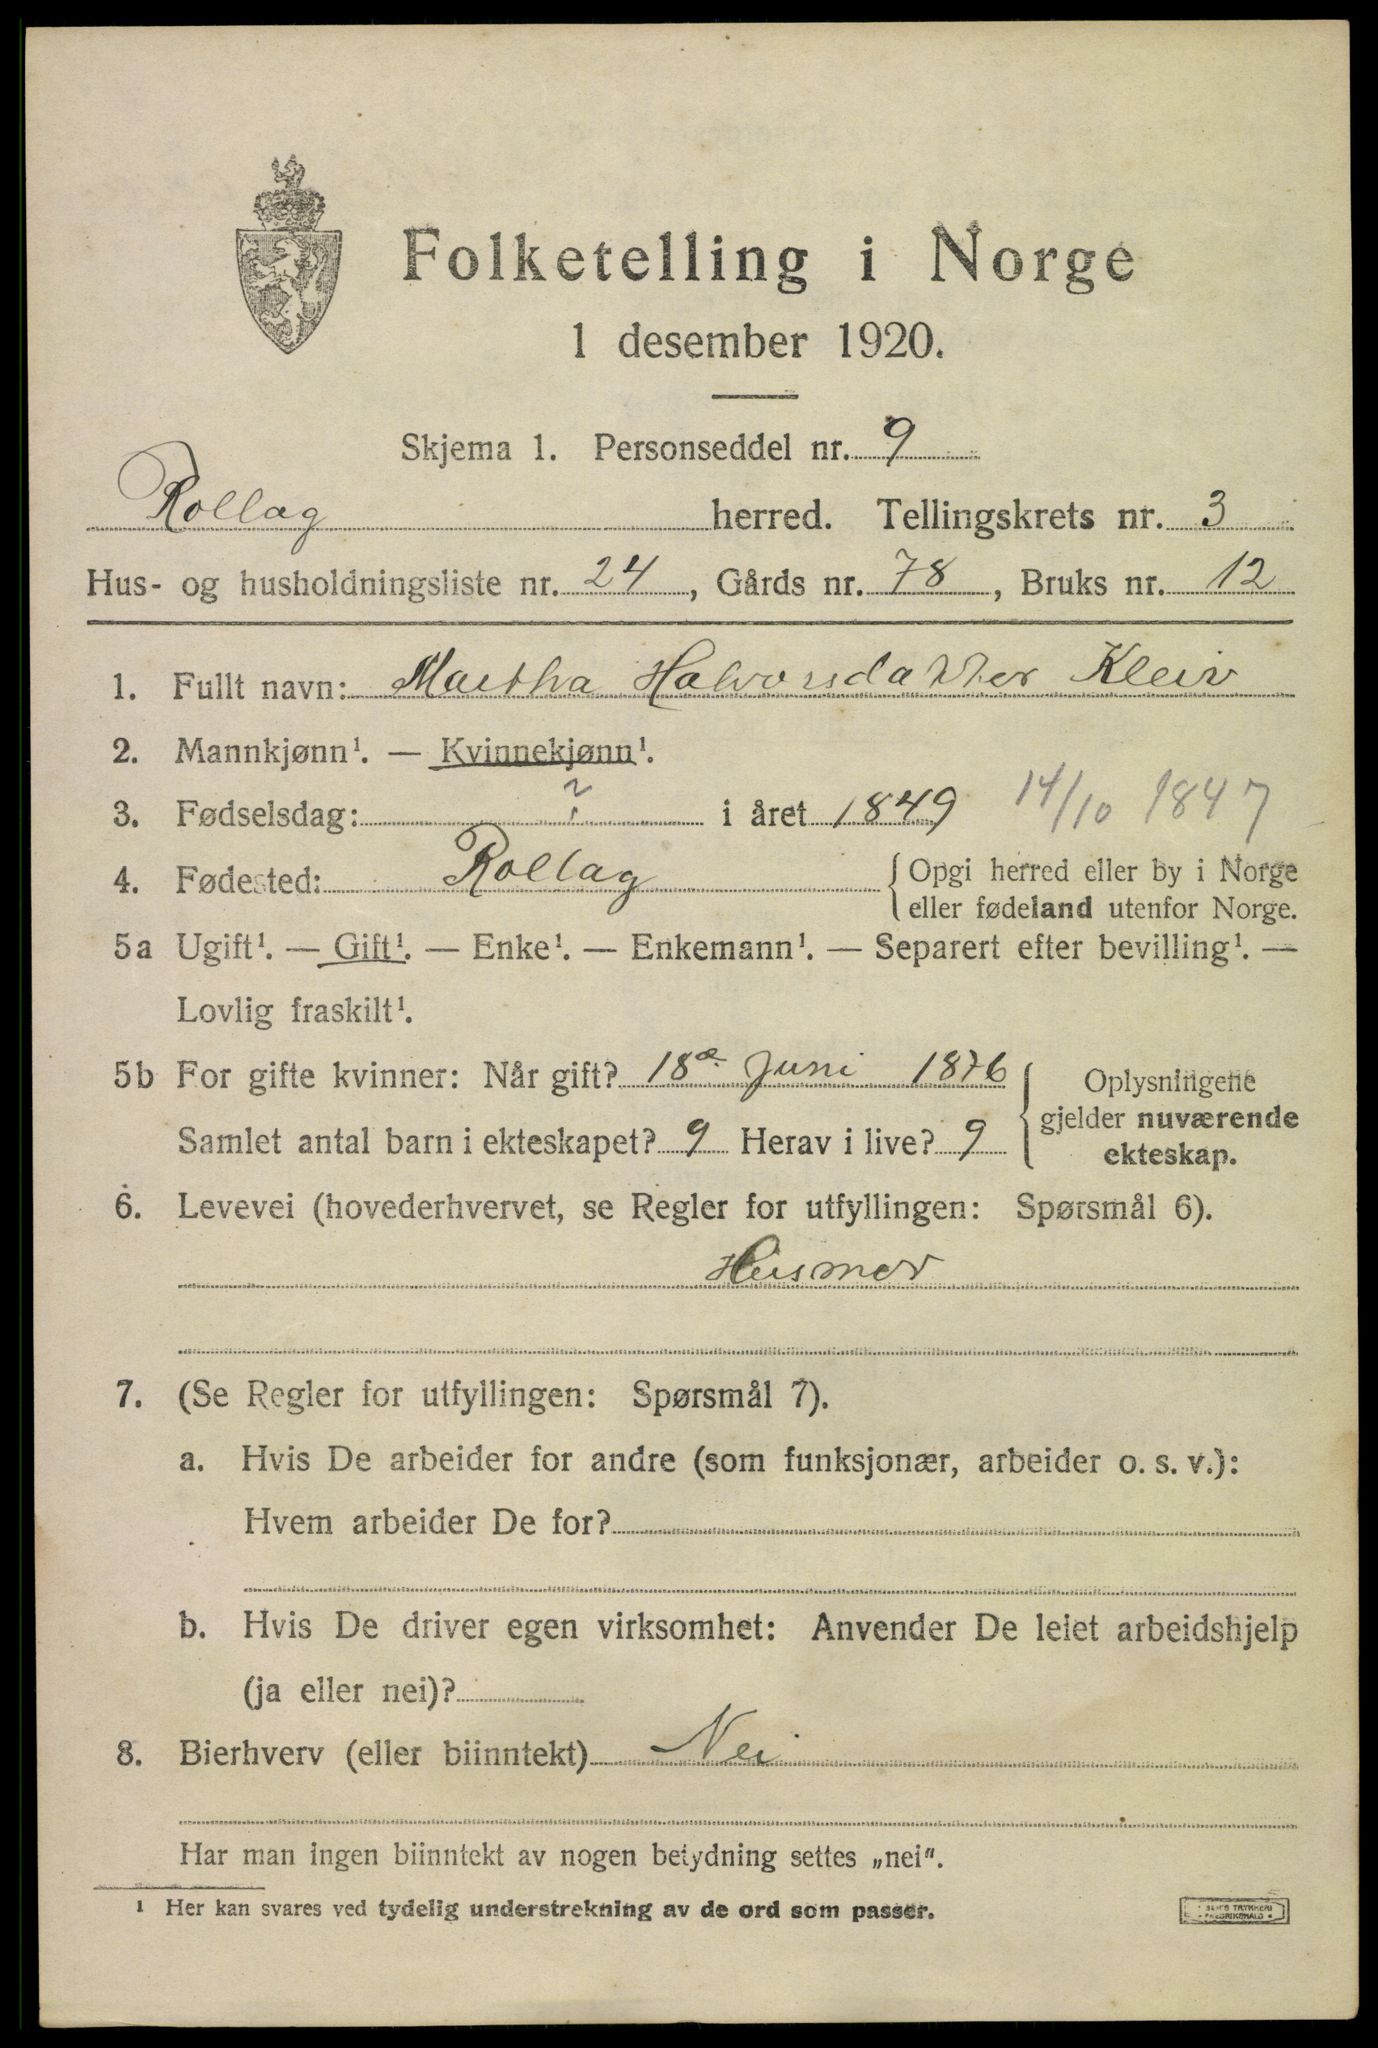 Folketelling i Norge
1 desember 1920.
Skjema 1. Personseddel nr. 9
Rollag herred. Tellingskrets nr. 3
Hus- og husholdningsliste nr. 24, Gårds nr. 78, Bruks nr. 12
1. Fullt navn: Martha Halvorsdatter Kleiv
2. Mannkjønn¹. — Kvinnekjønn¹.
3. Fødselsdag: ? i året 1849 14/10 1847
4. Fødested: Rollag { Opgi herred eller by i Norge
eller fødeland utenfor Norge.
5a Ugift¹. — Gift¹. — Enke¹. — Enkemann¹. — Separert efter bevilling¹. —
Lovlig fraskilt¹.
5b For gifte kvinner: Når gift? 18de Juni 1876 { Oplysningene
gjelder nuværende
Samlet antal barn i ekteskapet? 9 Herav i live? 9 ekteskap.
6. Levevei (hovederhvervet, se Regler for utfyllingen: Spørsmål 6).
Husmor
7. (Se Regler for utfyllingen: Spørsmål 7).
a. Hvis De arbeider for andre (som funksjonær, arbeider o. s. v.):
Hvem arbeider De for?
b. Hvis De driver egen virksomhet: Anvender De leiet arbeidshjelp
(ja eller nei)?
8. Bierhverv (eller biinntekt) Nei
Har man ingen biinntekt av nogen betydning settes „nei".
¹ Her kan svares ved tydelig understrekning av de ord som passer.
TRYKKERI
FREDRIKSHALD